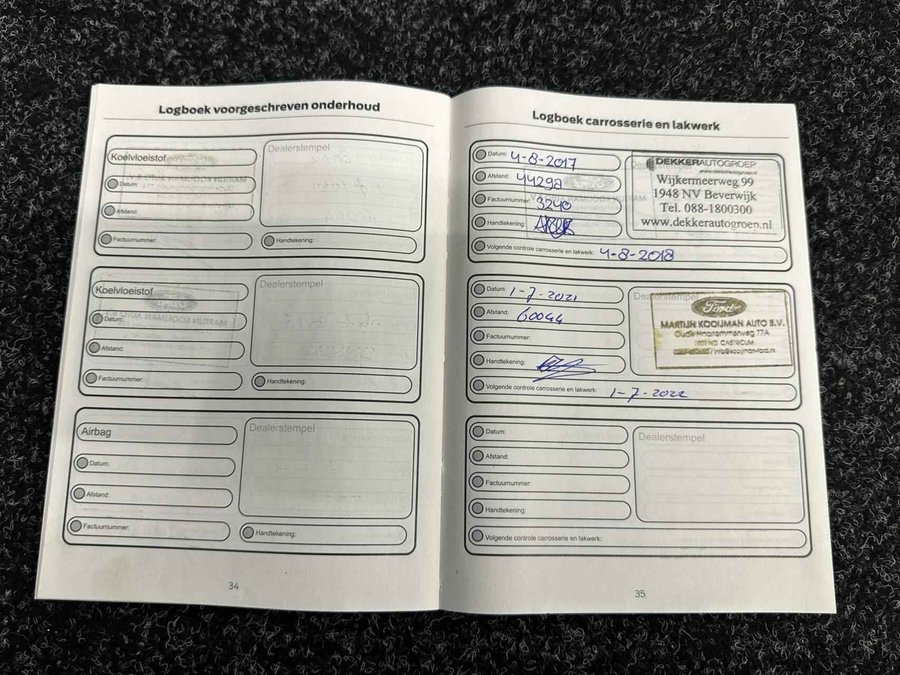 Logboek voorgeschreven onderhoud
Koelvloeistof
Dealerstempel
Datum:
Afstand:
Factuurnummer:
Handtekening:
Koelvloeistof
Dealerstempel
Datum:
Afstand:
Factuurnummer:
Handtekening:
Airbag
Dealerstempel
Datum:
Afstand:
Factuurnummer:
Handtekening:
34
Logboek carrosserie en lakwerk
Datum: 4-8-2017
Afstand: 44298
Factuurnummer: 3240
Handtekening:
Volgende controle carrosserie en lakwerk: 4-8-2018
DEKKERAUTOGROEP
www.dekkerautogroep.nl
Wijkermeerweg 99
1948 NV Beverwijk
Tel. 088-1800300
www.dekkerautogroen.nl
Datum: 1-7-2021
Afstand: 60044
Factuurnummer:
Handtekening:
Volgende controle carrosserie en lakwerk: 1-7-2022
Dealerstempel
Ford
MARTIJN KOOIJMAN AUTO B.V.
Oude Haarlemmerweg 77A
CASTRICUM
Datum:
Dealerstempel
Afstand:
Factuurnummer:
Handtekening:
Volgende controle carrosserie en lakwerk:
35